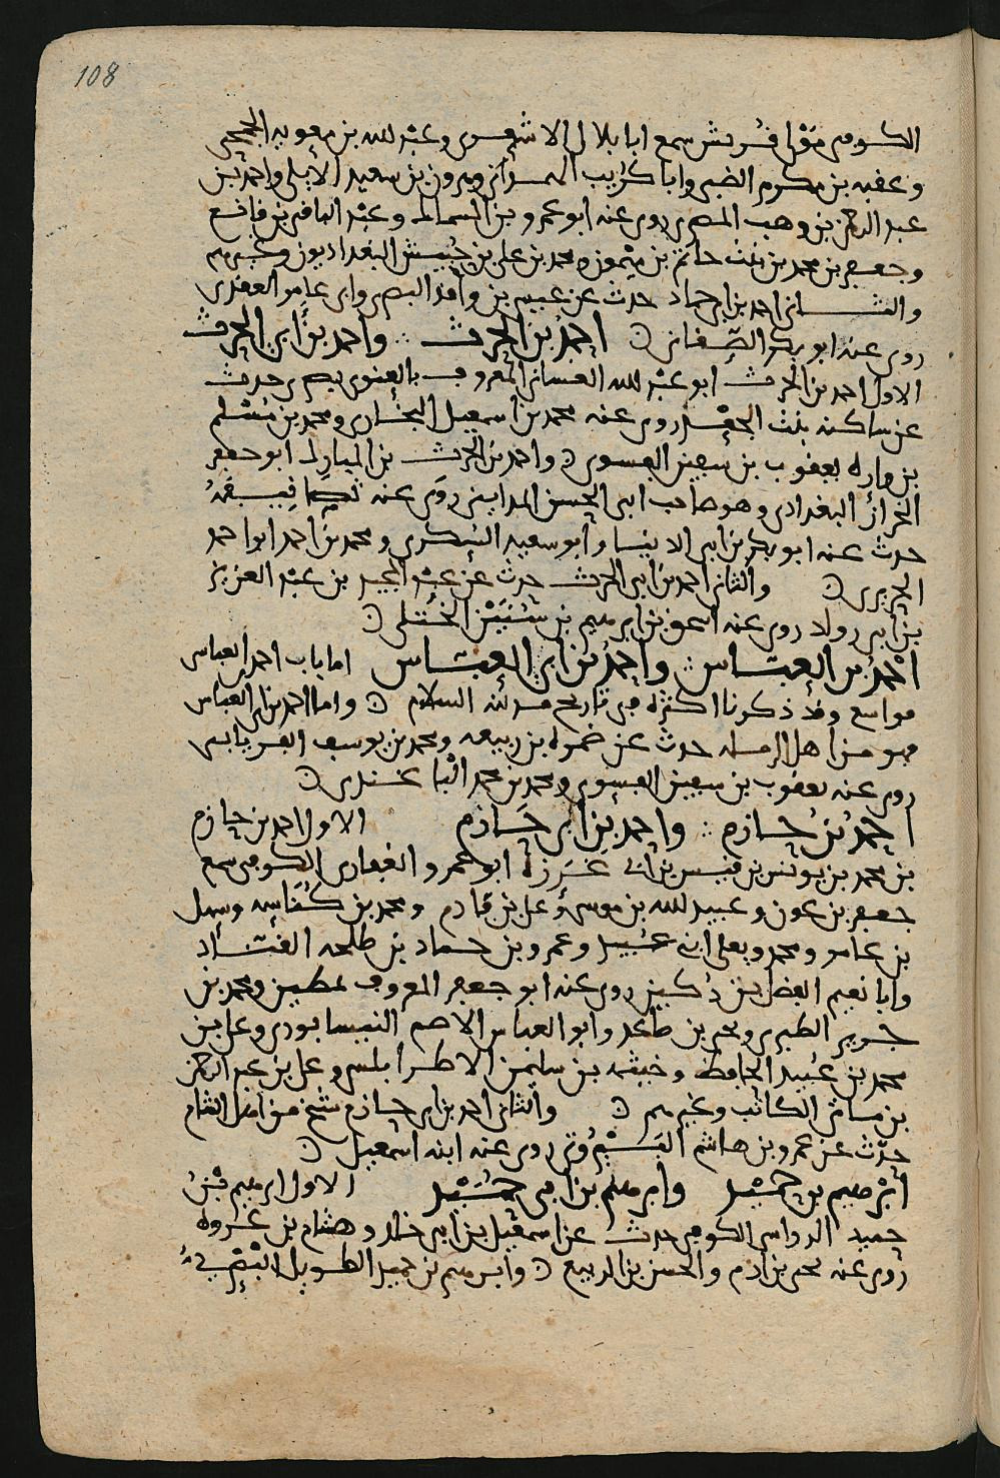 108
الكوفى مولى قريش سمع ابا بلال الاشعرى وعبد الله بن معوية الجمحى
وعقبه بن مكرم الضبى وابا كريب الهمدانى وهرون بن سعيد الايلى واحمد بن
عبد الرحمن بن وهب المصرى روى عنه ابو عمرو بن السماك وعبد الباقى بن قانع
وجعفر بن محمد بن بنت حاتم بن ميمون ومحمد بن على بن حبيش البغداديون وغيرهم
والثانى احمد بن ابى حماد حدث عن عبيس بن واقد البصرى وابى عامر العقدى
روى عنه ابو بكر احمد بن الحرث واحمد بن ابى الحرث
الاول احمد بن الحرث ابو عبد الله الغسانى المعروف بالغنوى بصرى حدث
عن ساكنه بنت الجعد روى عنه محمد بن اسمعيل البخارى ومحمد بن مسلم
بن واره يعقوب بن سفين الفسوى واحمد بن الحرث بن المبارك ابو جعفر
الخراز البغدادى وهو صاحب ابى الحسن المداينى روى عنه تصانيفه
حدث عنه ابو بكر بن ابى الدنيا وابو سعيد السكرى ومحمد بن احمد ابو احمد
الجريرى والثانى احمد بن ابى الحرث حدث عن عبد المجيد بن عبد العزيز
بن ابى رواد روى عنه اسحق بن ابرهيم بن سنين الختلى
احمد بن العباس واحمد بن ابى العباس اما باب احمد بن العباس
فواسع وقد ذكرنا اكثره فى تاريخ مدينة السلام واما احمد بن ابى العباس
فهو من اهل الرملة حدث عن ضمره بن ربيعه ومحمد بن يوسف الفريابى
روى عنه يعقوب بن سفين الفسوى ومحمد بن محمد الباغندى
احمد بن حازم واحمد بن ابى حازم الاول احمد بن حازم
بن محمد بن يونس بن قيس بن ابى غرزة ابو عمرو الغفارى الكوفى سمع
جعفر بن عون وعبيد الله بن موسى وعلى بن قادم ومحمد بن كناسه وسهل
بن عامر ومحمد ويعلى ابنى عبيد وعمرو بن حماد بن طلحه القناد
وابا نعيم الفضل بن دكين روى عنه ابو جعفر المعروف بمطين ومحمد بن
جرير الطبرى ويحيى بن صاعد وابو العباس الاصم النيسابورى وعلى بن
محمد بن عبيد الحافظ وخيثمه بن سليمن الاطرابلسى وعلى بن عبد الرحمن
بن ماتى الكاتب وغيرهم والثانى احمد بن ابى حازم شيخ من اهل الشام
حدث عن عمرو بن هاشم البيروتى روى عنه ابنه اسمعيل
ابرهيم بن حميد وابرهيم بن ابى حميد الاول ابرهيم بن
حميد الرواسى الكوفى حدث عن اسمعيل بن ابى خالد وهشام بن عروه
روى عنه يحيى بن ادم والحسن بن الربيع وابرهيم بن حميد الطويل البصرى